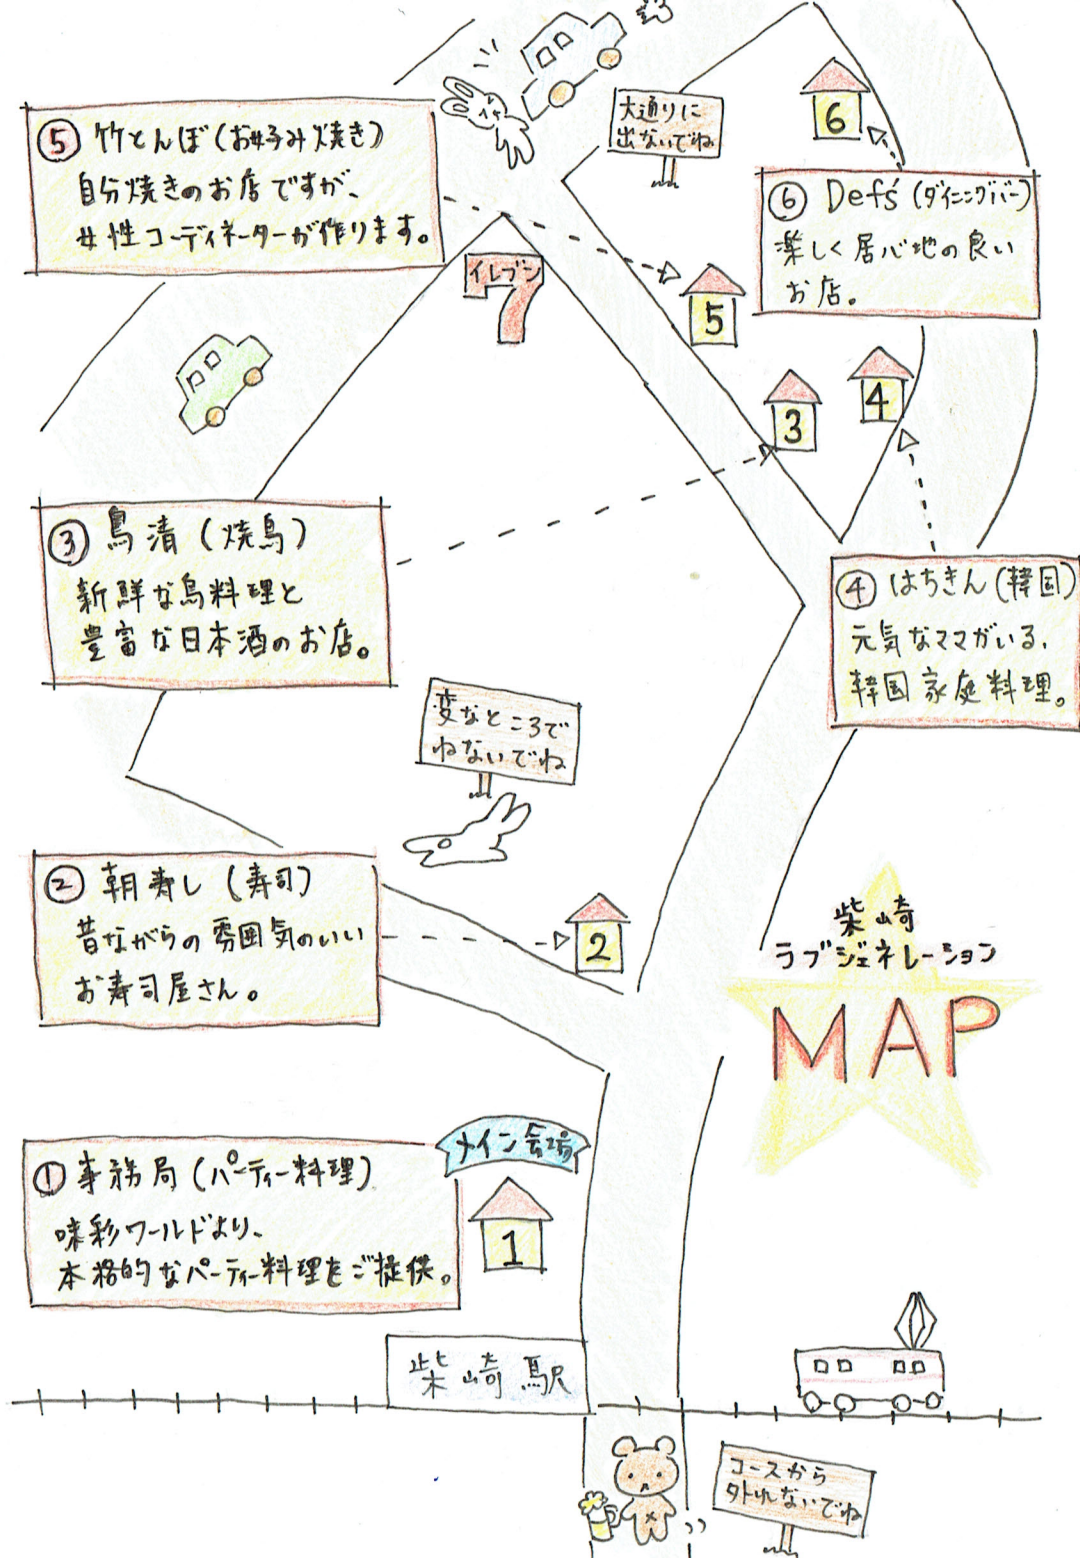 大通りに
出ないでね
6
⑤ 竹とんぼ(お好み焼き)
自分焼きのお店ですが、
女性コーディネーターが作ります。
⑥ Def's (ダイニングバー)
楽しく居心地の良い
お店。
イレブン
7
5
4
3
③ 鳥清(焼鳥)
新鮮な鳥料理と
豊富な日本酒のお店。
④ はちきん(韓国)
元気なママがいる、
韓国家庭料理。
変なところで
ねないでね
② 朝寿し(寿司)
昔ながらの雰囲気のいい
お寿司屋さん。
2
柴崎
ラブジェネレーション
MAP
メイン会場
① 事務局(パーティー料理)
味彩ワールドより、
本格的なパーティー料理をご提供。
1
柴崎駅
コースから
外れないでね